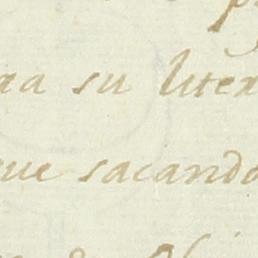 ra su liter
que sacando